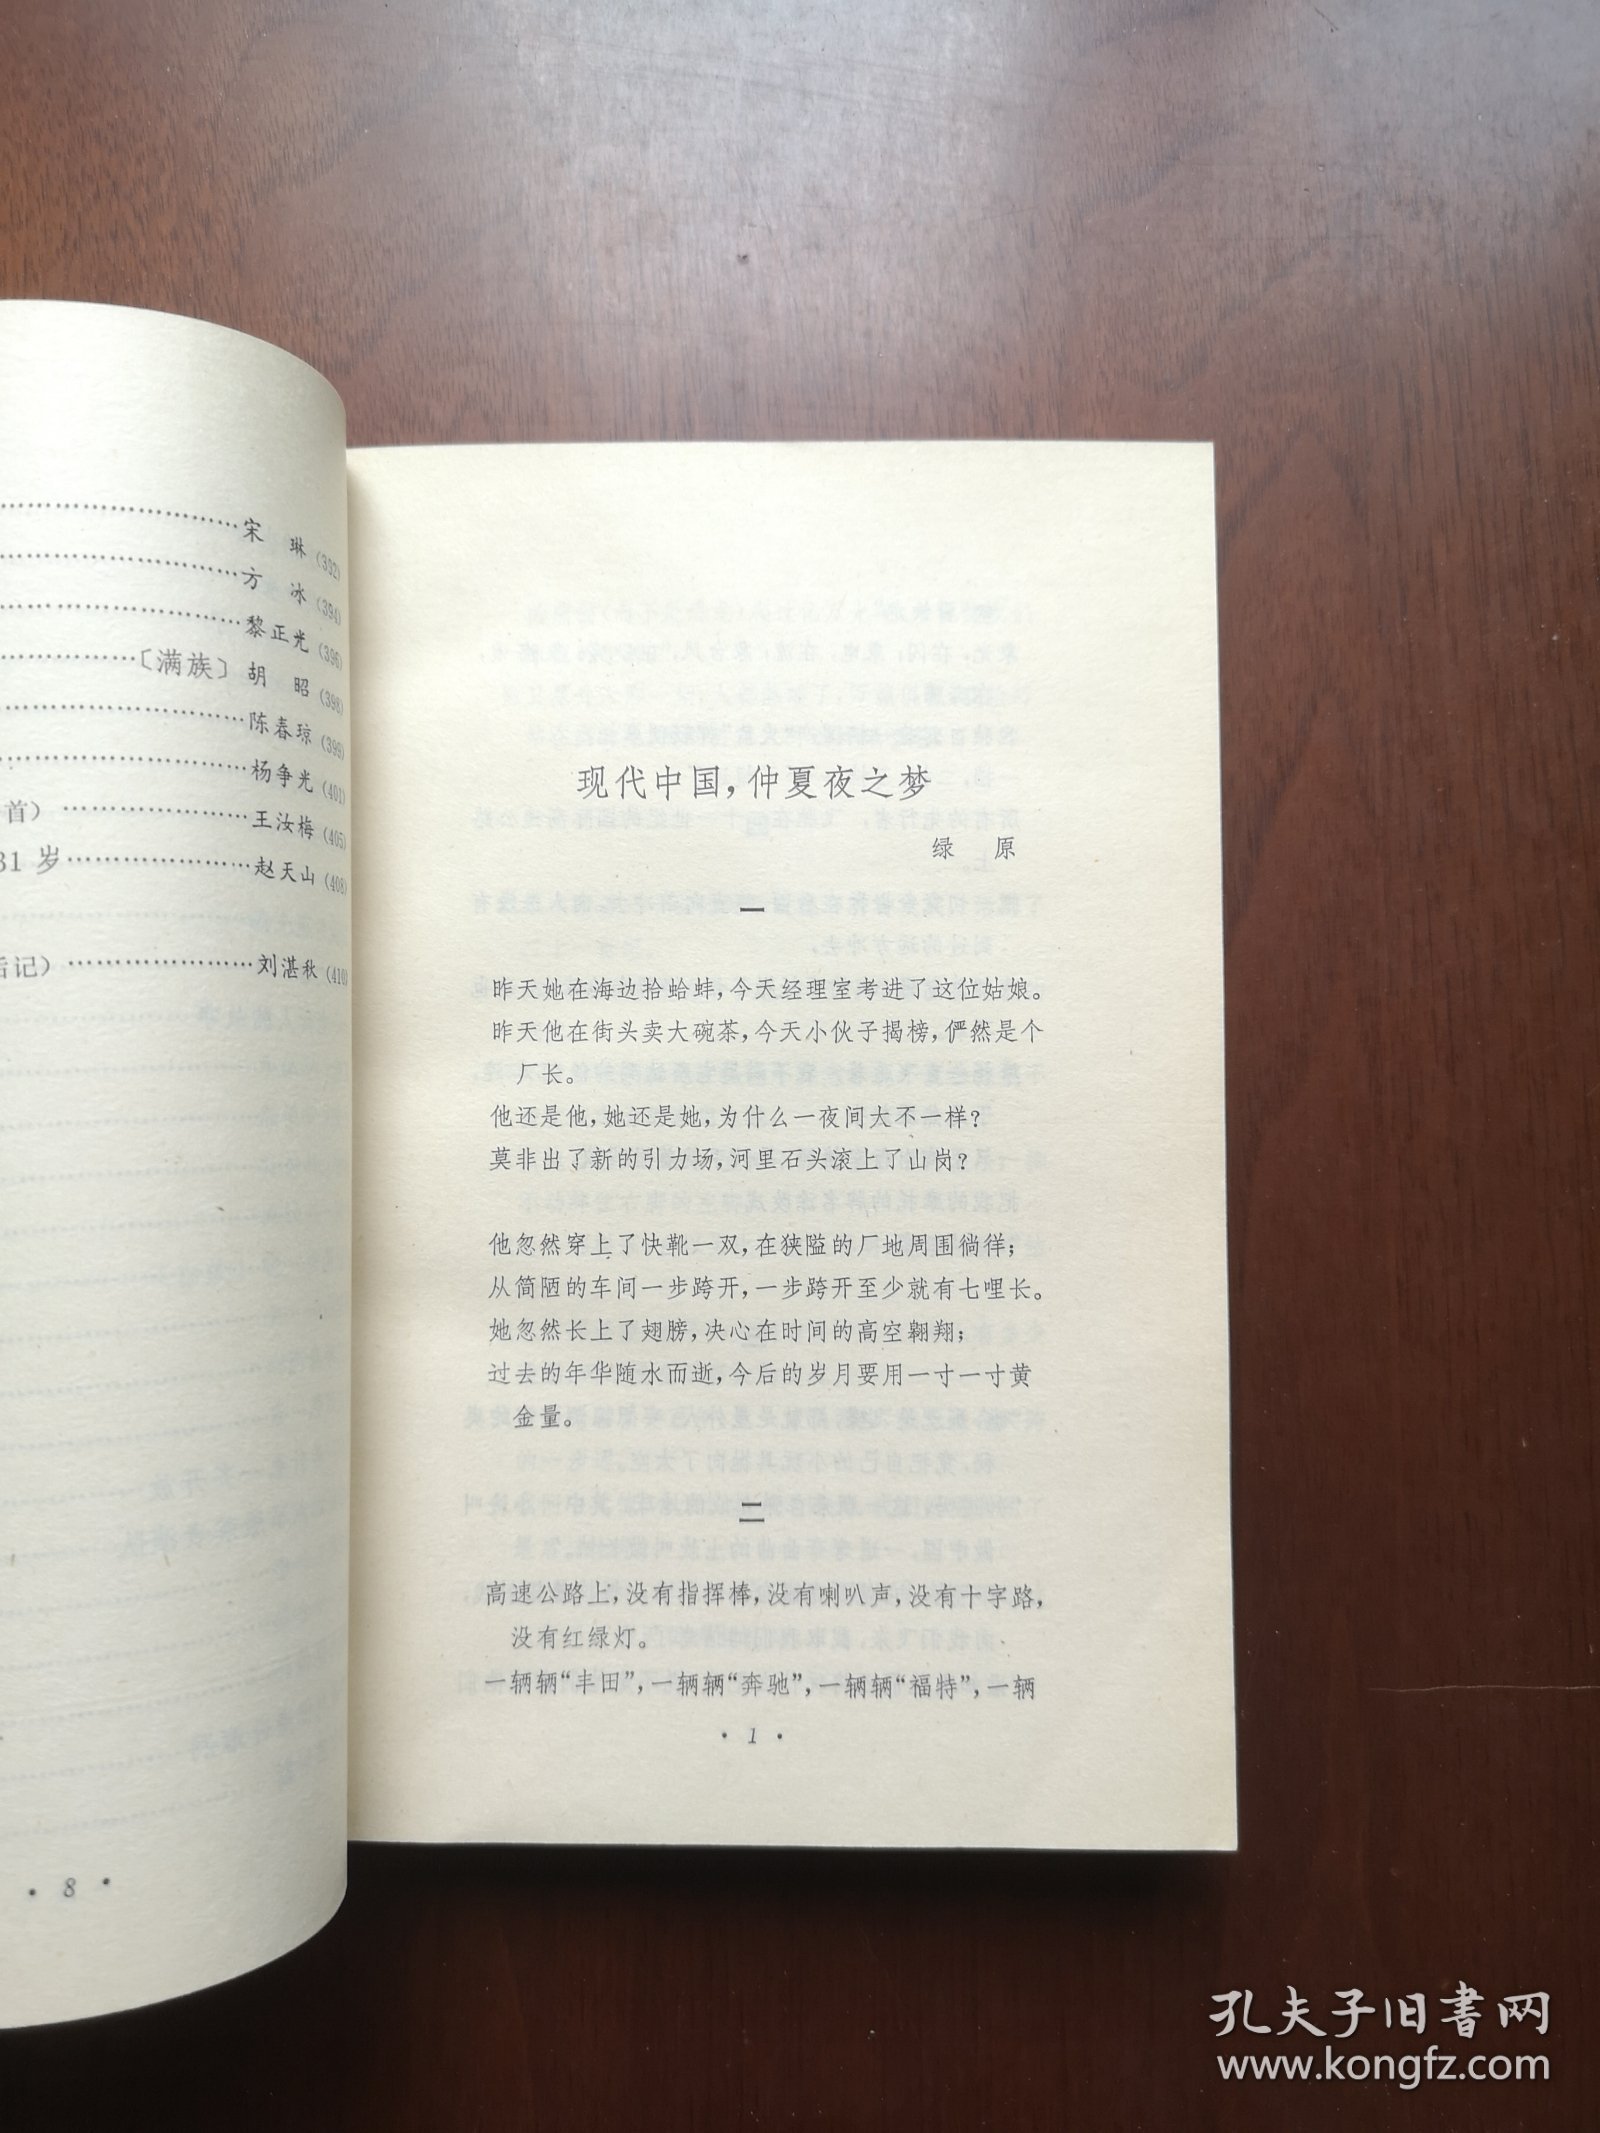 宋 琳(392)
方 冰(394)
黎正光(396)
〔满族〕胡 昭(398)
陈春琼(399)
杨争光(401)
首)王汝梅(405)
31 岁赵天山(408)
后记)刘湛秋(410)
· 8 ·
现代中国,仲夏夜之梦
绿 原
一
昨天她在海边拾蛤蚌,今天经理室考进了这位姑娘。
昨天他在街头卖大碗茶,今天小伙子揭榜,俨然是个
厂长。
他还是他,她还是她,为什么一夜间大不一样?
莫非出了新的引力场,河里石头滚上了山岗?
他忽然穿上了快靴一双,在狭隘的厂地周围徜徉;
从简陋的车间一步跨开,一步跨开至少就有七哩长。
她忽然长上了翅膀,决心在时间的高空翱翔;
过去的年华随水而逝,今后的岁月要用一寸一寸黄
金量。
二
高速公路上,没有指挥棒,没有喇叭声,没有十字路,
没有红绿灯。
一辆辆“丰田”,一辆辆“奔驰”,一辆辆“福特”,一辆
· 1 ·
孔夫子旧书网
www.kongfz.com